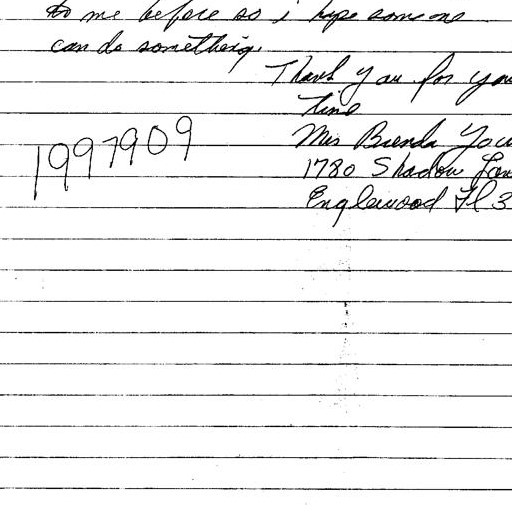 to me before so i hope some one
can do something.
Thank you for you
time
Mrs Brenda You
1780 Shadow Lan
Englewood Fl 3
1997909